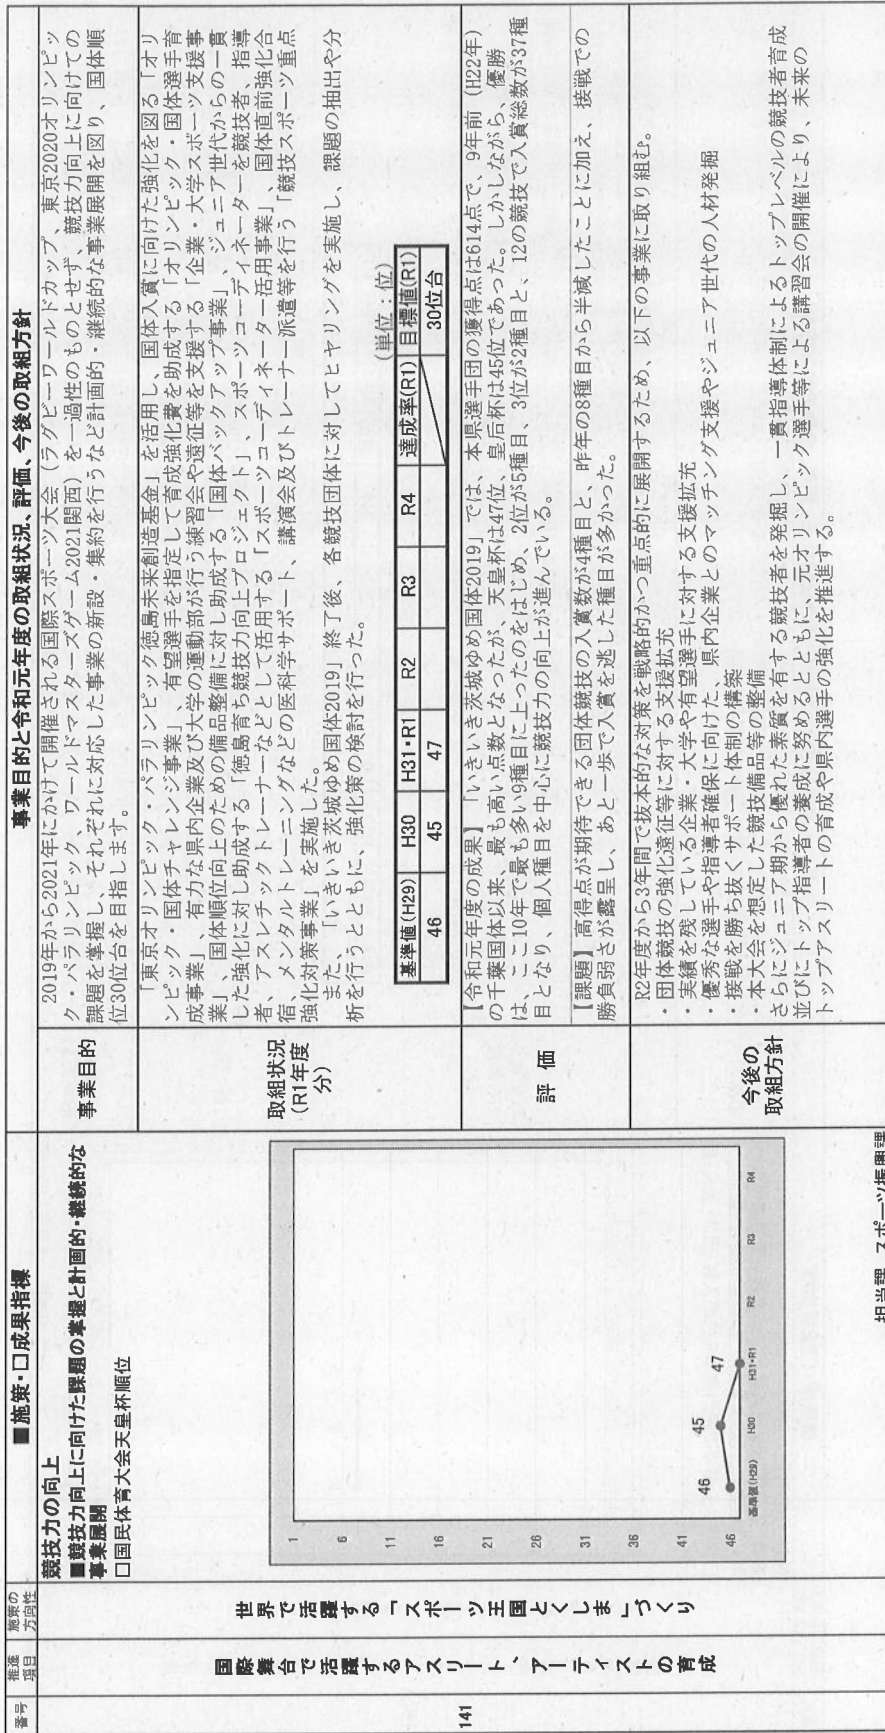 番号
推進
項目
施策の
方向性
■施策・□成果指標
事業目的と令和元年度の取組状況、評価、今後の取組方針
141
国際舞台で活躍するアスリート、アーティストの育成
世界で活躍する「スポーツ王国とくしま」づくり
競技力の向上
■競技力向上に向けた課題の掌握と計画的・継続的な
事業展開
□国民体育大会天皇杯順位
1
6
11
16
21
26
31
36
41
46
46
45
47
基準値(H29)
H30
H31・R1
R2
R3
R4
事業目的
2019年から2021年にかけて開催される国際スポーツ大会（ラグビーワールドカップ、東京2020オリンピッ
ク・パラリンピック、ワールドマスターズゲーム2021関西）を一過性のものとせず、競技力向上に向けての
課題を掌握し、それぞれに対応した事業の新設・集約を行うなど計画的・継続的な事業展開を図り、国体順
位30位台を目指します。
取組状況
（R1年度
分）
「東京オリンピック・パラリンピック徳島未来創造基金」を活用し、国体入賞に向けた強化を図る「オリ
ンピック・国体チャレンジ事業」、有望選手を指定して育成強化費を助成する「オリンピック・国体選手育
成事業」、有力な県内企業及び大学の運動部が行う練習会や遠征等を支援する「企業・大学スポーツ支援事
業」、国体順位向上のための備品整備に対し助成する「国体バックアップ事業」、ジュニア世代からの一貫
した強化に対し助成する「徳島育ち競技力向上プロジェクト」、スポーツコーディネーターを競技者、指導
者、アスレチックトレーナーなどとして活用する「スポーツコーディネーター活用事業」、国体直前強化合
宿、メンタルトレーニングなどの医科学サポート、講演会及びトレーナー派遣等を行う「競技スポーツ重点
強化対策事業」を実施した。
また、「いきいき茨城ゆめ国体2019」終了後、各競技団体に対してヒヤリングを実施し、課題の抽出や分
析を行うとともに、強化策の検討を行った。
（単位：位）
基準値(H29) H30 H31・R1 R2 R3 R4 達成率(R1) 目標値(R1)
46 45 47 30位台
評 価
【令和元年度の成果】「いきいき茨城ゆめ国体2019」では、本県選手団の獲得点は614点で、9年前（H22年）
の千葉国体以来、最も高い点数となったが、天皇杯は47位、皇后杯は45位であった。しかしながら、優勝
は、ここ10年で最も多い9種目に上ったのをはじめ、2位が5種目、3位が2種目と、12の競技で入賞総数が37種
目となり、個人種目を中心に競技力の向上が進んでいる。
【課題】高得点が期待できる団体競技の入賞数が4種目と、昨年の8種目から半減したことに加え、接戦での
勝負弱さが露呈し、あと一歩で入賞を逃した種目が多かった。
今後の
取組方針
R2年度から3年間で抜本的な対策を戦略的かつ重点的に展開するため、以下の事業に取り組む。
・団体競技の強化遠征等に対する支援拡充
・実績を残している企業・大学や有望選手に対する支援拡充
・優秀な選手や指導者確保に向けた、県内企業とのマッチング支援やジュニア世代の人材発掘
・接戦を勝ち抜くサポート体制の構築
・本大会を想定した競技備品等の整備
さらにジュニア期から優れた素質を有する競技者を発掘し、一貫指導体制によるトップレベルの競技者育成
並びにトップ指導者の養成に努めるとともに、元オリンピック選手等による講習会の開催により、未来の
トップアスリートの育成や県内選手の強化を推進する。
担当課 スポーツ振興課